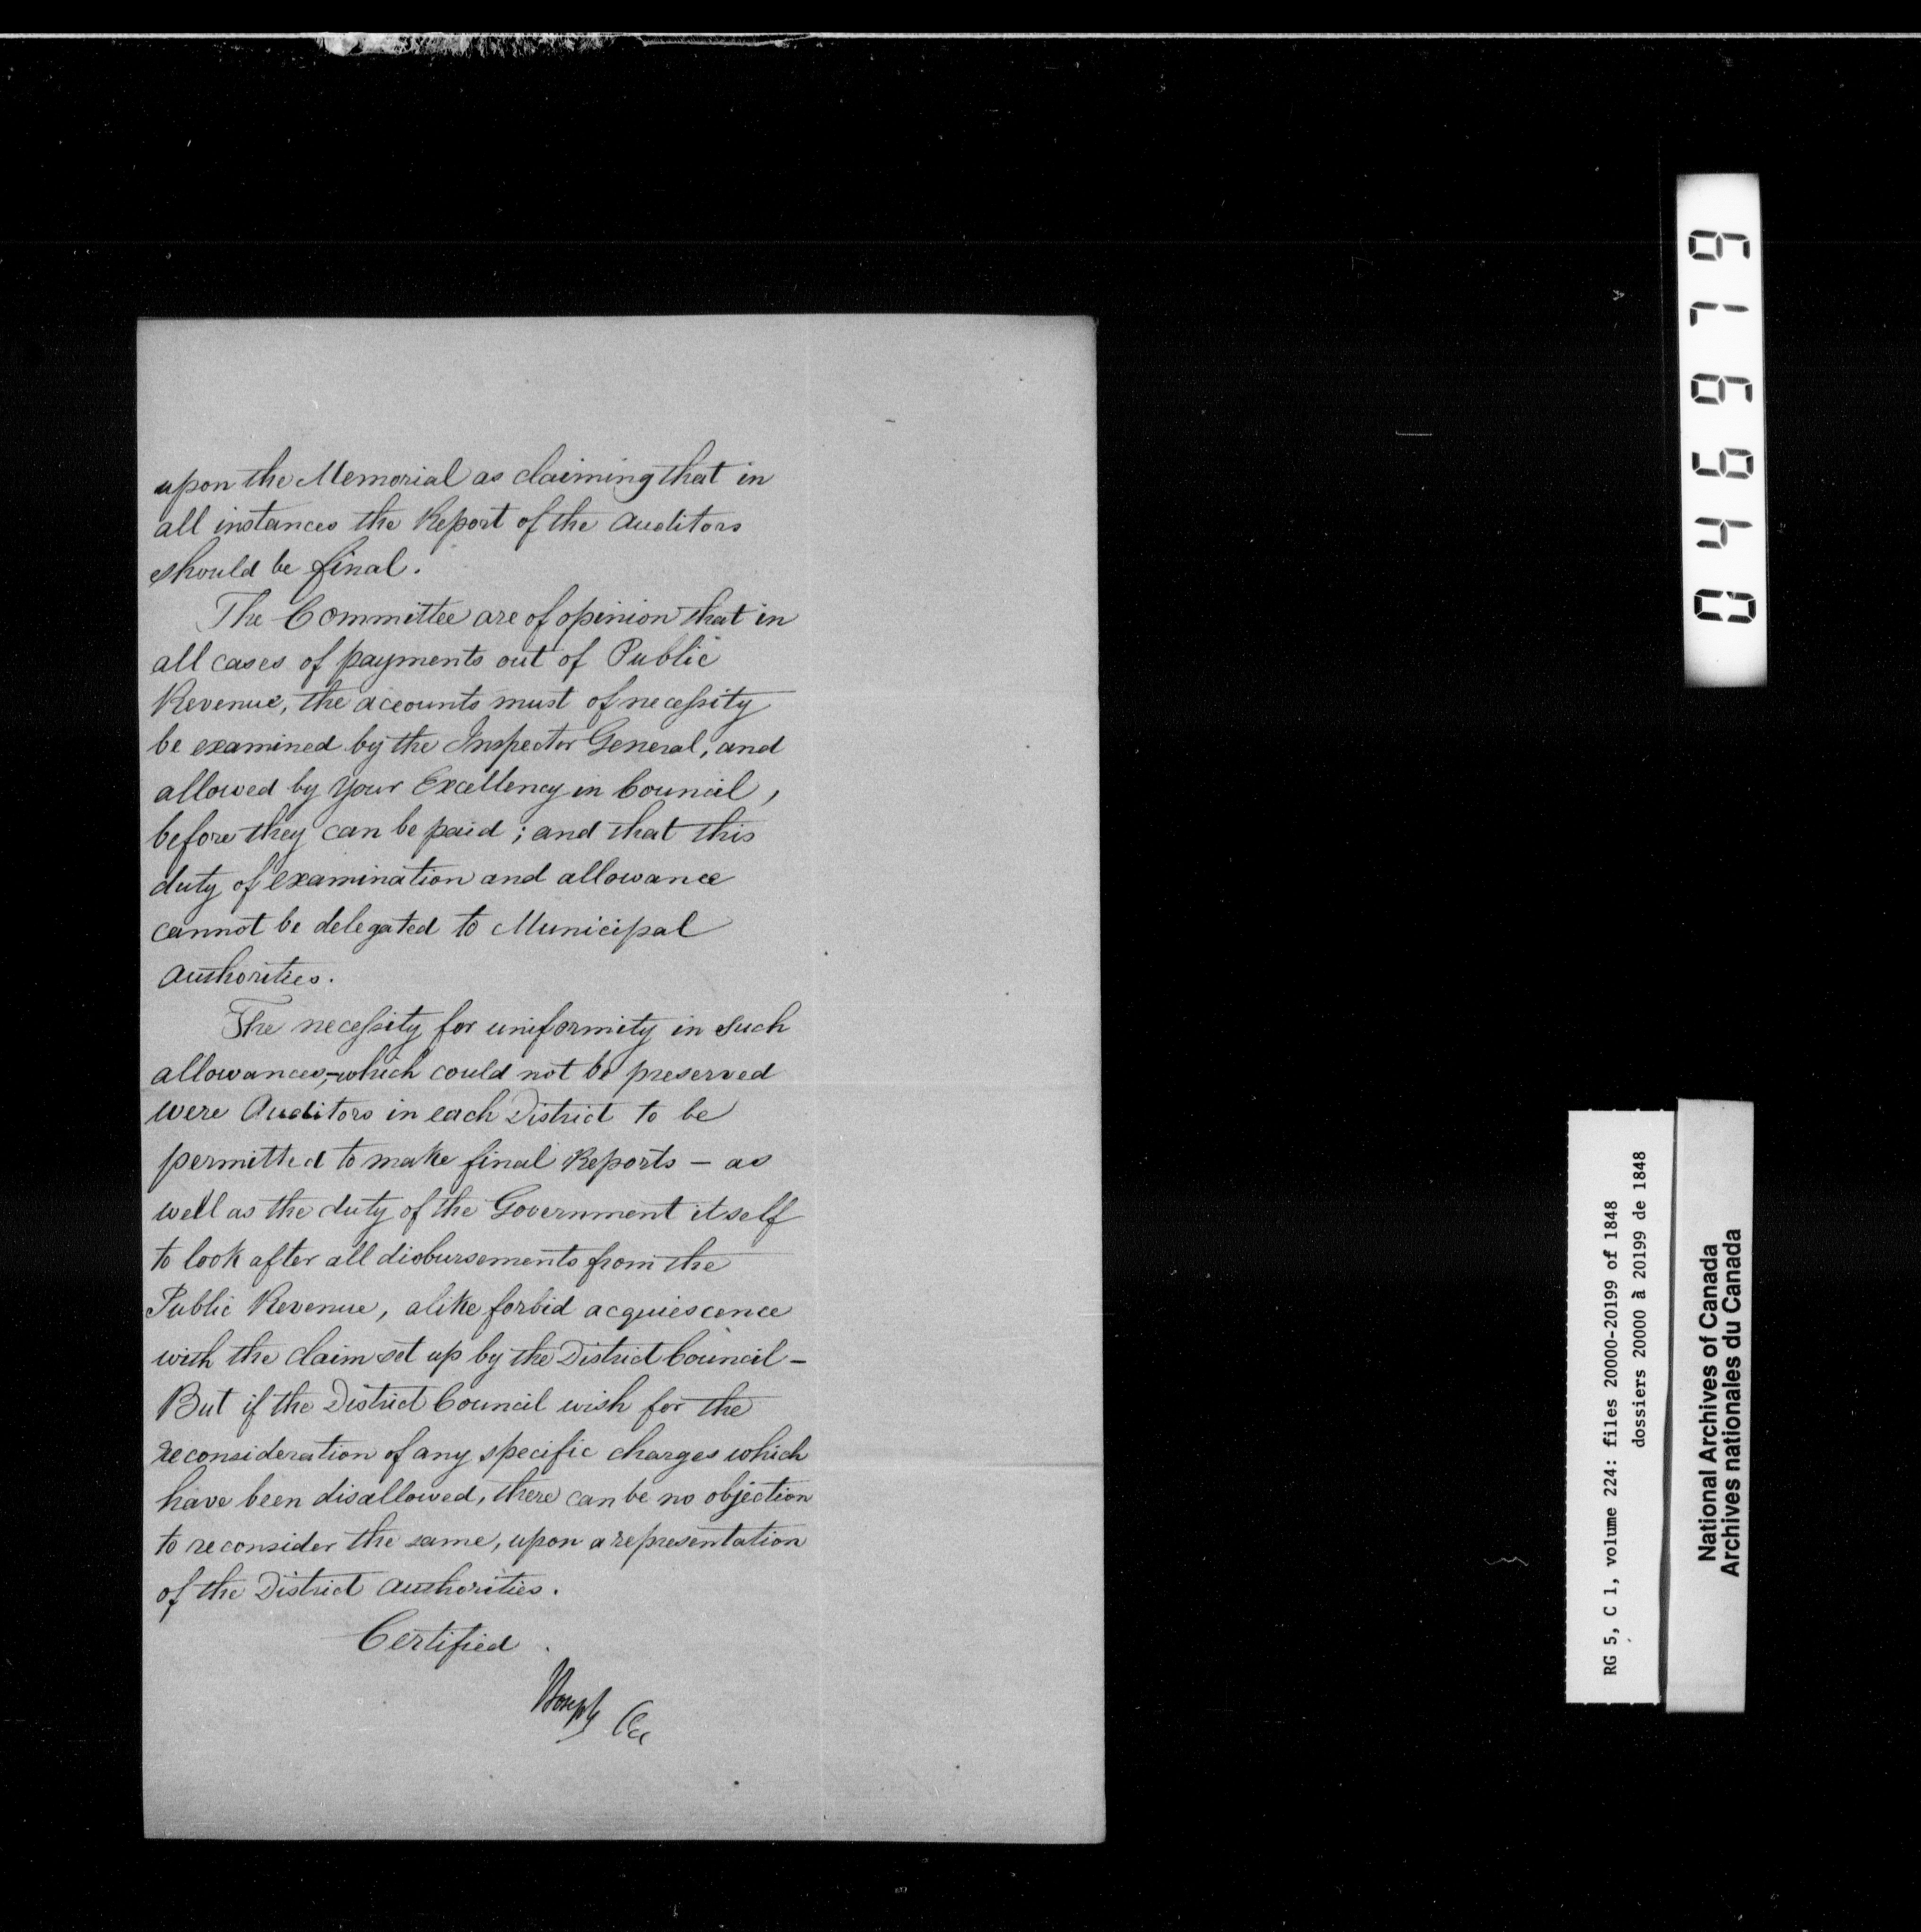 upon the Memorial as claiming that in
all instances the Report of the Auditors
should be final.
The Committee are of opinion that in
all cases of payments out of Public
Revenue, the accounts must of necessity
be examined by the Inspector General, and
allowed by Your Excellency in Council,
before they can be paid; and that this
duty of examination and allowance
cannot be delegated to Municipal
Authorities.
The necessity for uniformity in such
allowances, - which could not be preserved
were Auditors in each District to be
permitted to make final Reports — as
well as the duty of the Government itself
to look after all disbursements from the
Public Revenue, alike forbid acquiescence
with the claim set up by the District Council —
But if the District Council wish for the
reconsideration of any specific charges which
have been disallowed, there can be no objection
to reconsider the same, upon a representation
of the District Authorities.
Certified.
Joseph
046979
RG 5, C 1, volume 224: files 20000-20199 of 1848
dossiers 20000 à 20199 de 1848
National Archives of Canada
Archives nationales du Canada